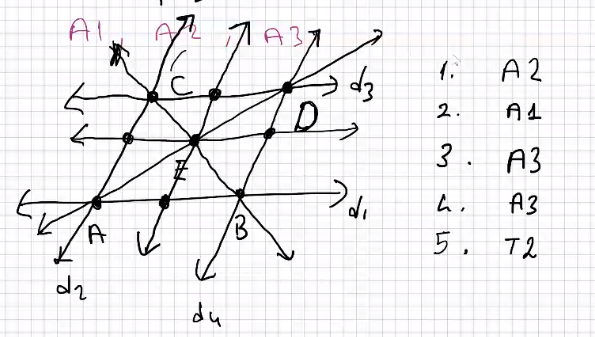 A1, A2, A3
C
d3
D
E
A
B
d1
d2
d4
1. A2
2. A1
3. A3
4. A3
5. T2